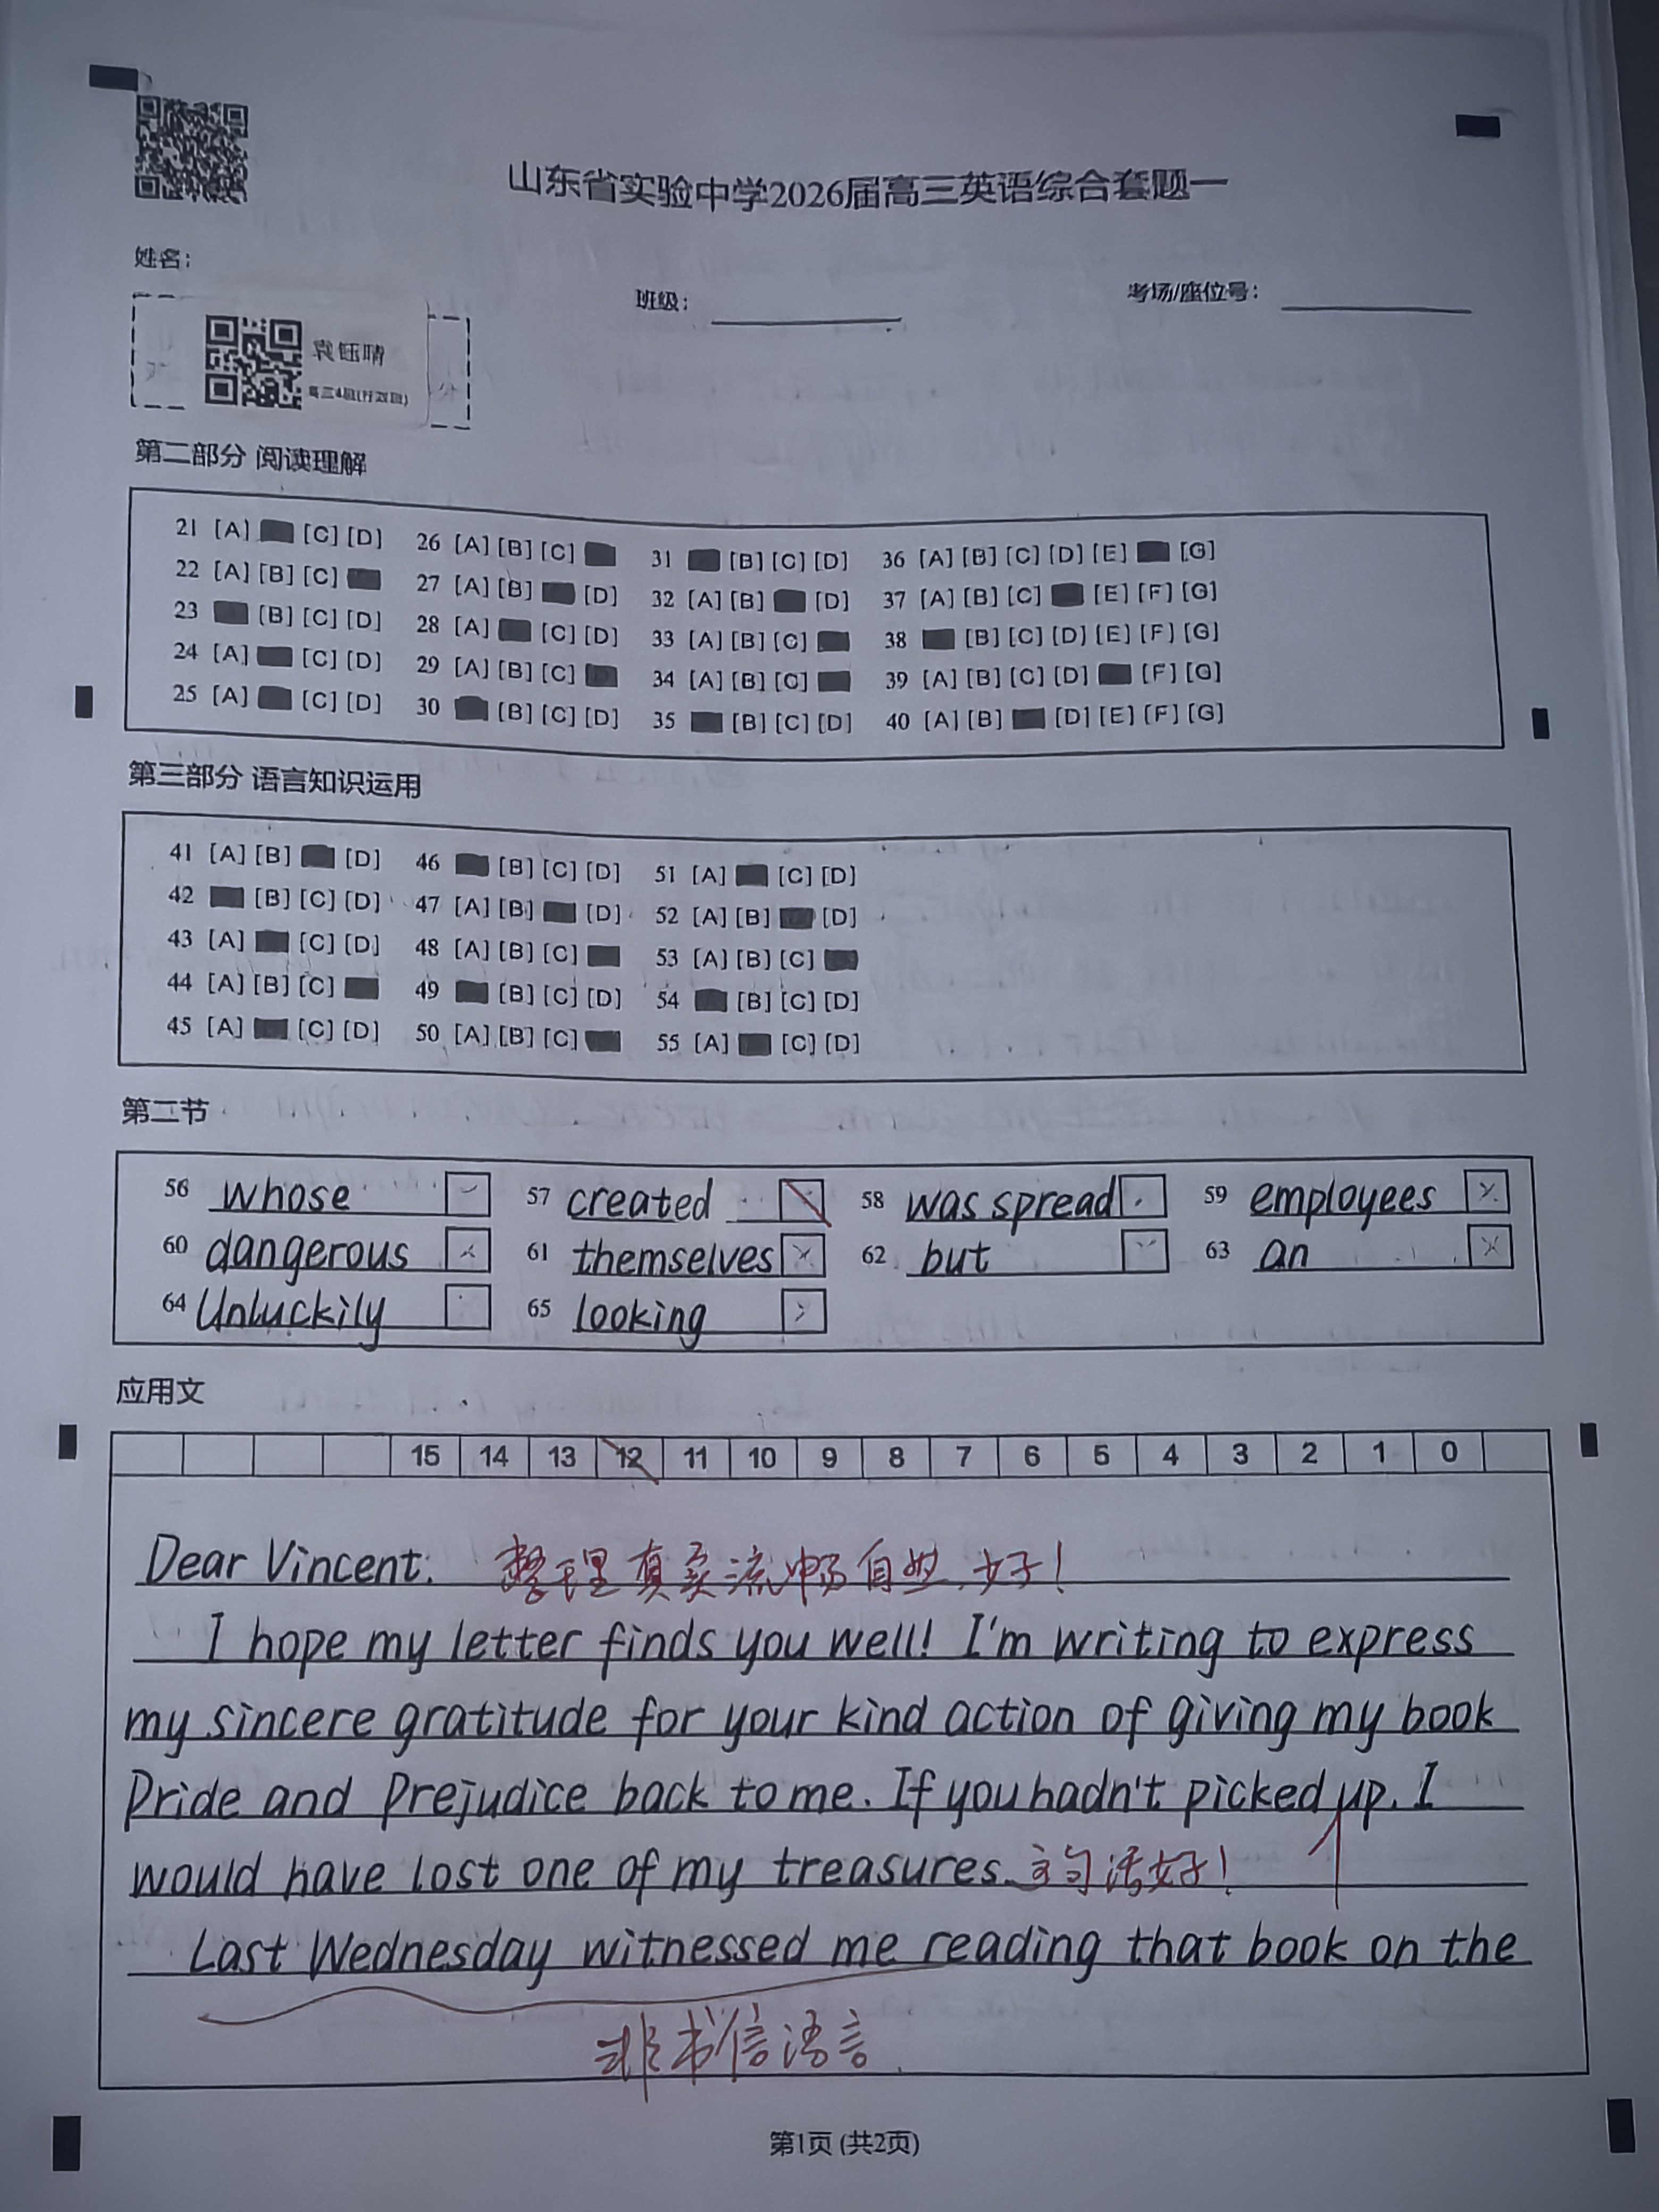 山东省实验中学2026届高三英语综合套题一
姓名：
班级：
考场/座位号：
袁钰晴
第二部分 阅读理解
21 [A] [C] [D] 26 [A] [B] [C] 31 [B] [C] [D] 36 [A] [B] [C] [D] [E] [G]
22 [A] [B] [C] 27 [A] [B] [D] 32 [A] [B] [D] 37 [A] [B] [C] [E] [F] [G]
23 [B] [C] [D] 28 [A] [C] [D] 33 [A] [B] [C] 38 [B] [C] [D] [E] [F] [G]
24 [A] [C] [D] 29 [A] [B] [C] 34 [A] [B] [C] 39 [A] [B] [C] [D] [F] [G]
25 [A] [C] [D] 30 [B] [C] [D] 35 [B] [C] [D] 40 [A] [B] [D] [E] [F] [G]
第三部分 语言知识运用
41 [A] [B] [D] 46 [B] [C] [D] 51 [A] [C] [D]
42 [B] [C] [D] 47 [A] [B] [D] 52 [A] [B] [D]
43 [A] [C] [D] 48 [A] [B] [C] 53 [A] [B] [C]
44 [A] [B] [C] 49 [B] [C] [D] 54 [B] [C] [D]
45 [A] [C] [D] 50 [A] [B] [C] 55 [A] [C] [D]
第二节
56 whose 57 created 58 was spread 59 employees
60 dangerous 61 themselves 62 but 63 an
64 Unluckily 65 looking
应用文
15 14 13 12 11 10 9 8 7 6 5 4 3 2 1 0
Dear Vincent: 整理真实流畅自然,好!
I hope my letter finds you well! I'm writing to express
my sincere gratitude for your kind action of giving my book
Pride and Prejudice back to me. If you hadn't picked up, I
would have lost one of my treasures. 句话好!
Last Wednesday witnessed me reading that book on the
非书信语言.
第1页 (共2页)